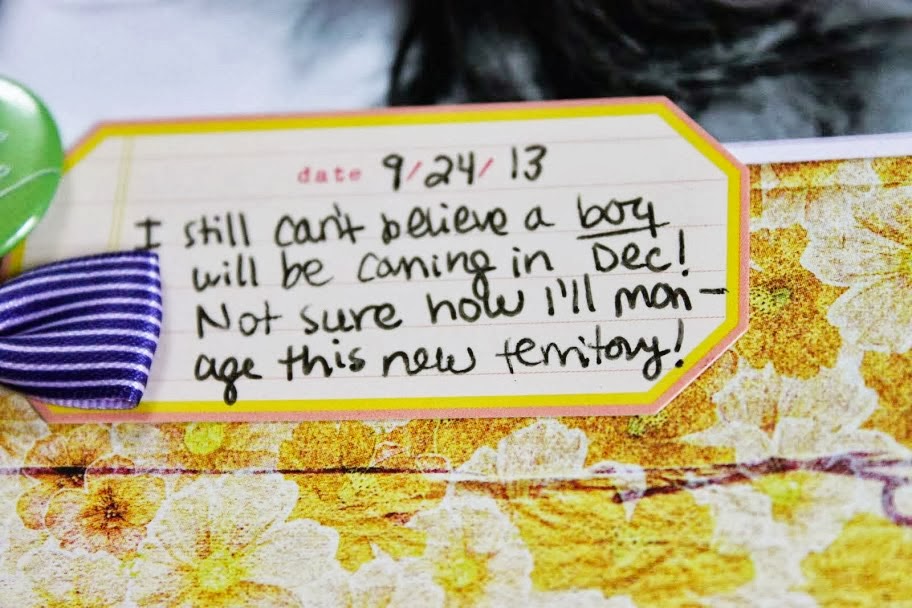 date 9/24/13
I still can't believe a boy
will be coming in Dec!
Not sure how I'll man-
age this new territory!